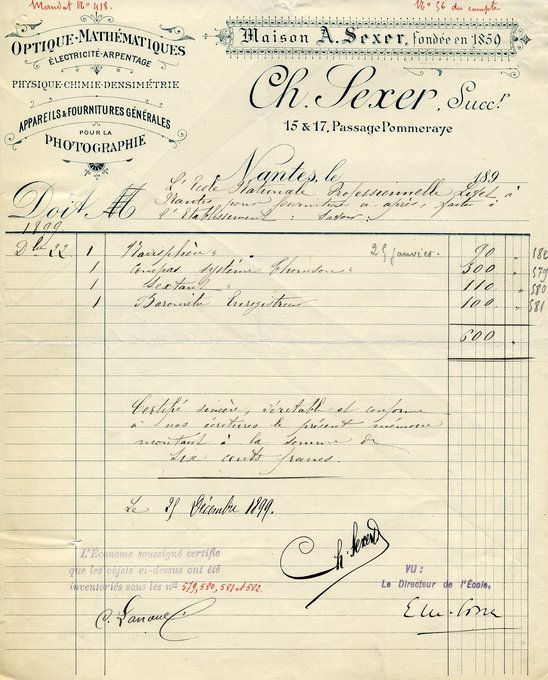 Mandat N° 418.
N° 56 du compte
OPTIQUE-MATHÉMATIQUES
ÉLECTRICITÉ-ARPENTAGE
PHYSIQUE-CHIMIE-DENSIMÉTRIE
APPAREILS & FOURNITURES GÉNÉRALES
POUR LA
PHOTOGRAPHIE
Maison A. Sexer, fondée en 1859
Ch. Sexer, Succr.
15 & 17, Passage Pommeraye
Nantes, le 189
Doit M L'Ecole Nationale Professionnelle Livet à
Nantes pour fournitures ci après, faite à
l'Etablissement : Savoir :
1899
Dbre 22 1 25 janvier. 90 "
1 Compas système Thomson 300 " 579
1 Sextant 110 " 580
1 Baromètre Enregistreur 100 " 581
600 "
Certifié sincère, véritable et conforme
à nos écritures le présent mémoire
montant à la somme de
Six cents francs.
Le 25 Décembre 1899.
Ch. Sexer
L'Économe soussigné certifie
que les objets ci-dessus ont été
inventoriés sous les nos 579, 580, 581 et 582.
VU :
Le Directeur de l'École,